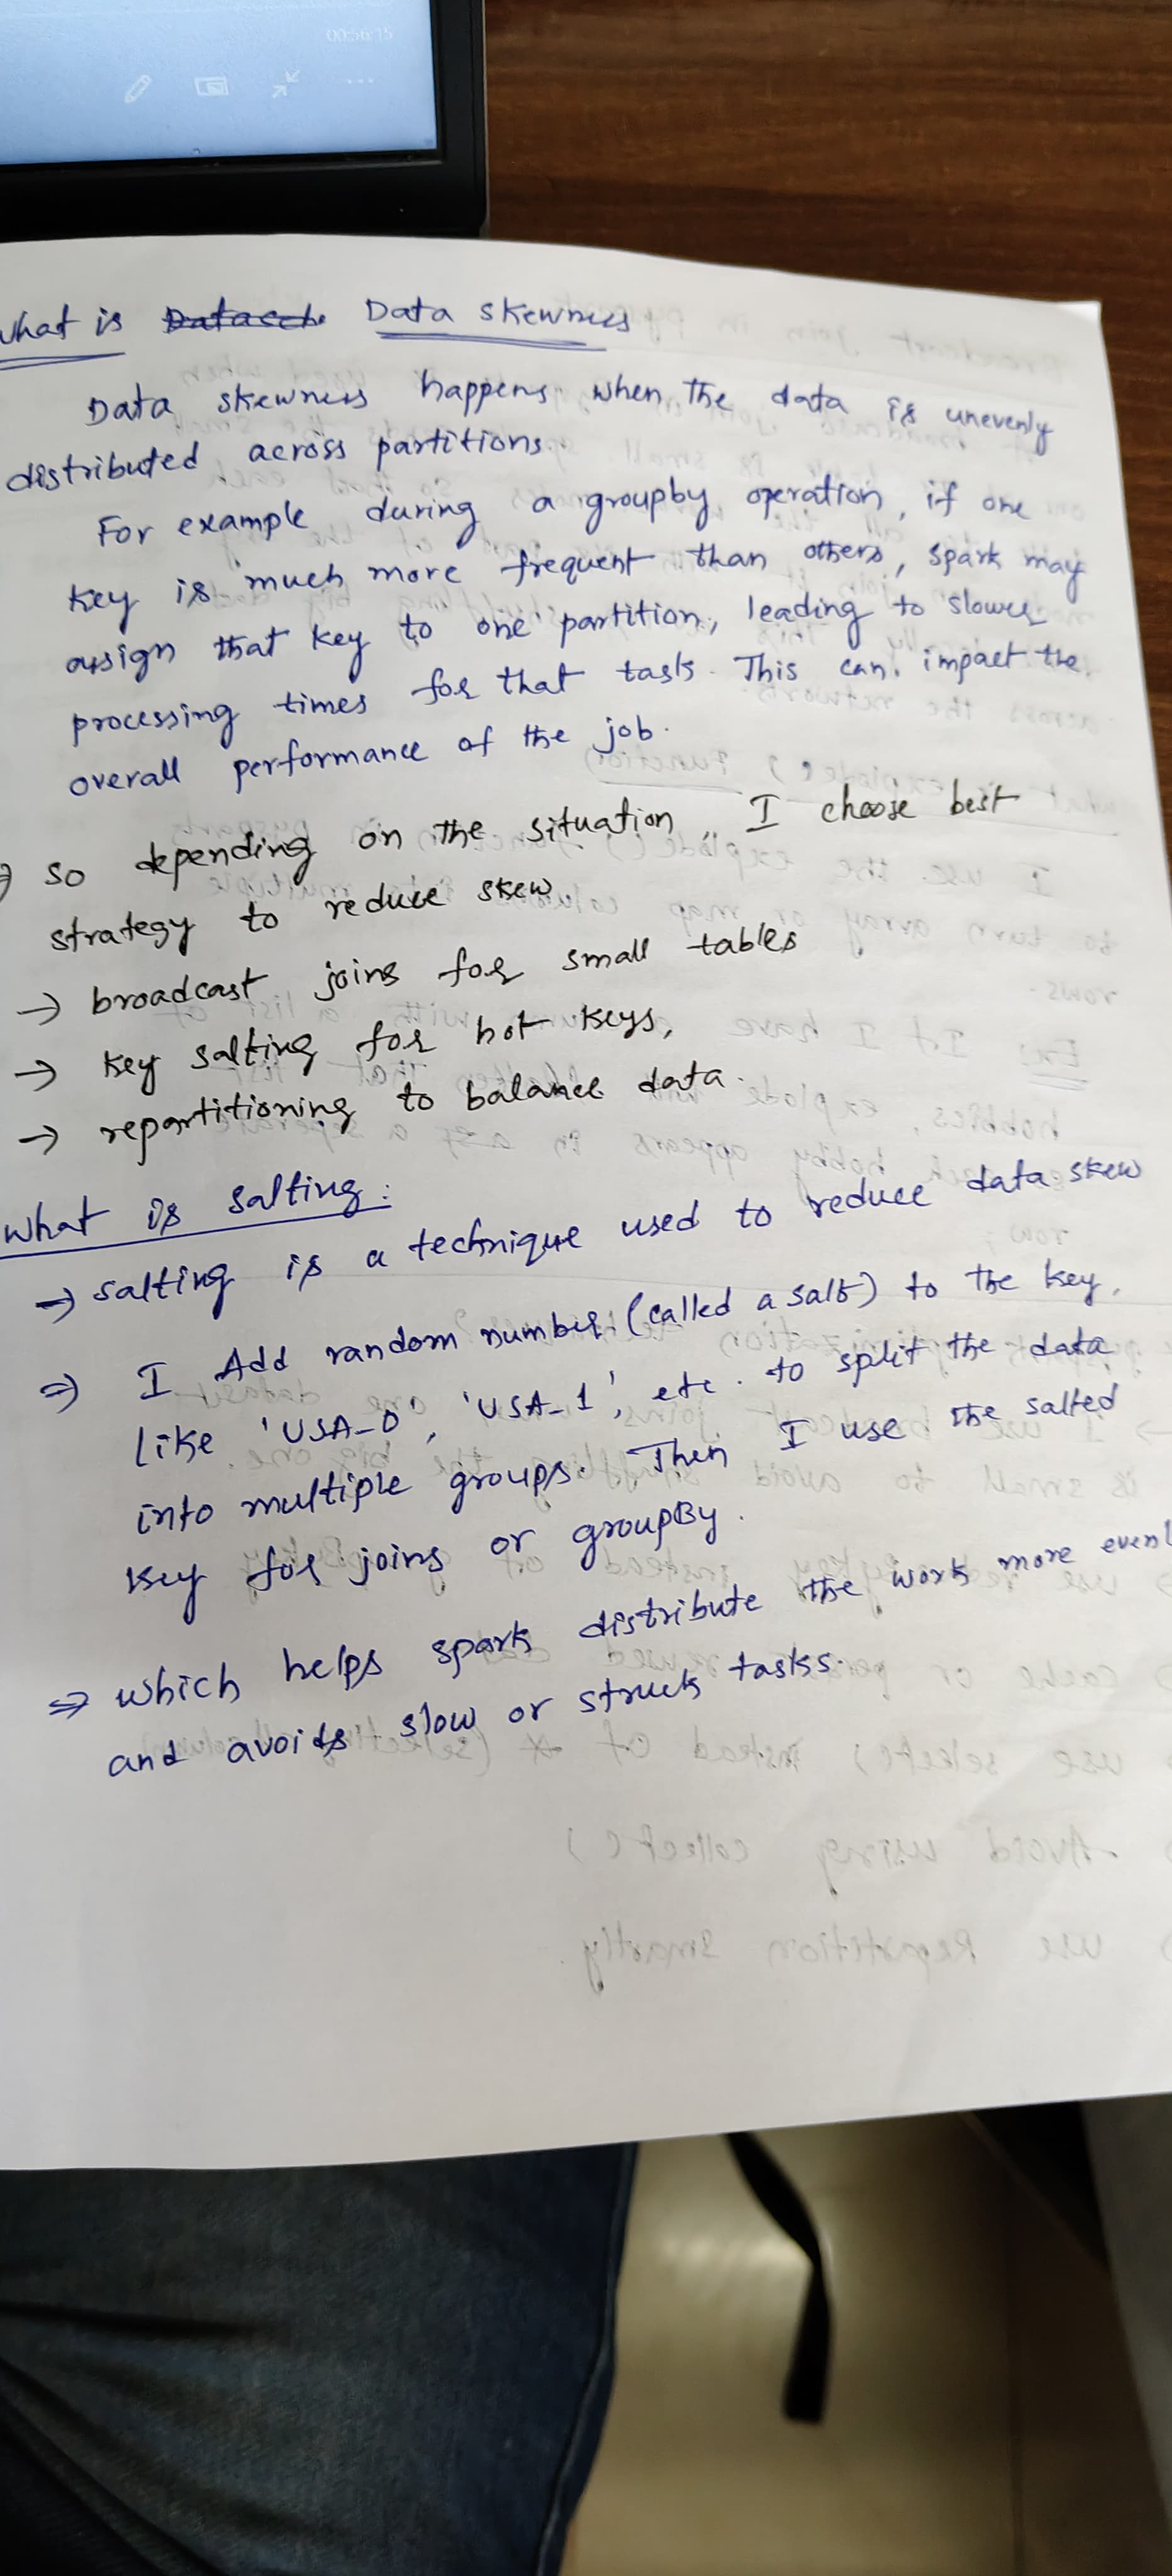 00:56:15
What is Data skewness
Data skewness happens, when the data is unevenly
distributed across partitions.
For example during a groupby operation, if one
key is much more frequent than others, spark may
assign that key to one partition, leading to slower
processing times for that task. This can impact the
overall performance of the job.
so depending on the situation, I choose best
strategy to reduce skew
→ broadcast joins for small tables
→ key salting for hot keys,
→ repartitioning to balance data.
What is salting:
→ salting is a technique used to reduce data skew
⇒ I Add random number (called a salt) to the key,
like 'USA_0', 'USA_1', etc. to split the data
into multiple groups. Then I use the salted
key for joins or groupBy.
⇒ which helps spark distribute the work more evenl
and avoids slow or struck tasks.